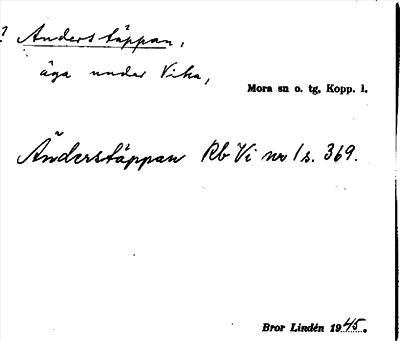 ? Anderstäppan,
äga under Vika,
Mora sn o. tg, Kopp. l.
Änderstäppan Rb Vi nr 1 s. 369.
Bror Lindén 1945.